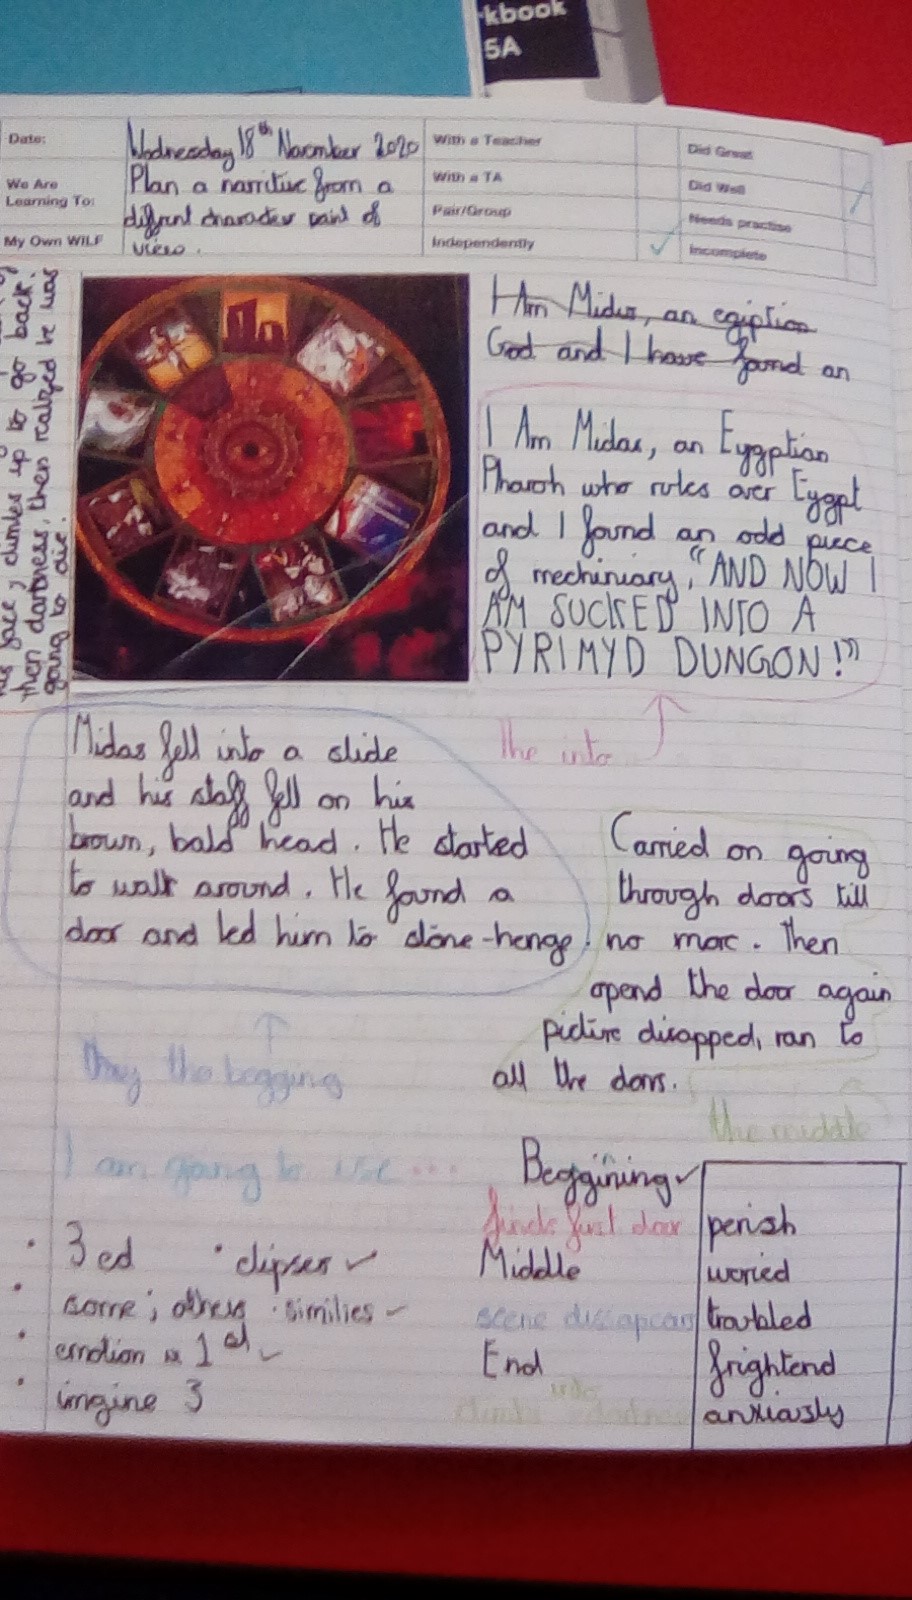 kbook
5A
Date:
Wednesday 18th November 2020
We Are
Learning To:
Plan a narritive from a
diffrent character point of
view.
My Own WILF
With a Teacher
With a TA
Pair/Group
Independently
Did Great
Did Well
Needs practise
Incomplete
face, climbes up to go back.
then darkness, then realzed he was
going to die.
I Am Midas, an egiption
God and I have found an
I Am Midas, an Eygptian
Pharoh who rules over Eygpt
and I found an odd piece
of mechiniary, "AND NOW I
AM SUCKED INTO A
PYRIMYD DUNGON!"
the into
Midas fell into a slide
and his staff fell on his
brown, bald head. He started
to walk around. He found a
door and led him to stone-henge.
the begging
Carried on going
through doors till
no more. Then
opend the door again
picture disapped, ran to
all the dors.
the middle
I am going to use...
3 ed
some; others
emotion
imgine 3
elipses
similies
Beggining
finds first door
Middle
scene dissapears
End
into
perish
woried
troubled
frightend
anxiously